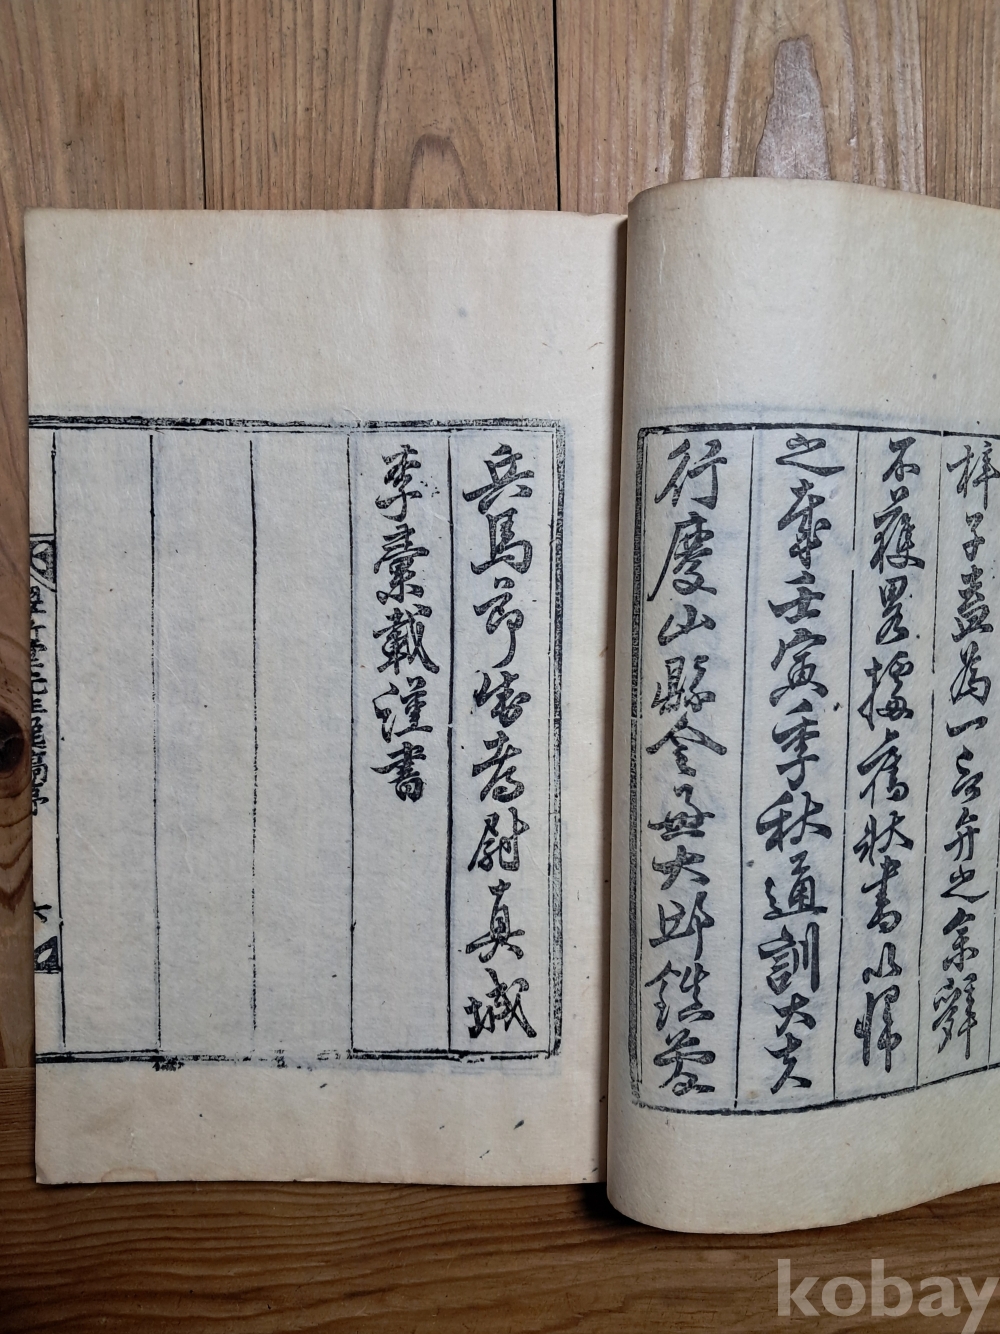 梓子盡爲一言弁之余辭
不獲畧掇舊狀書以歸
之峕壬寅季秋通訓大夫
行慶山縣令兼大邱鎮管
兵馬節制都尉真城
李彙載謹書
六
kobay